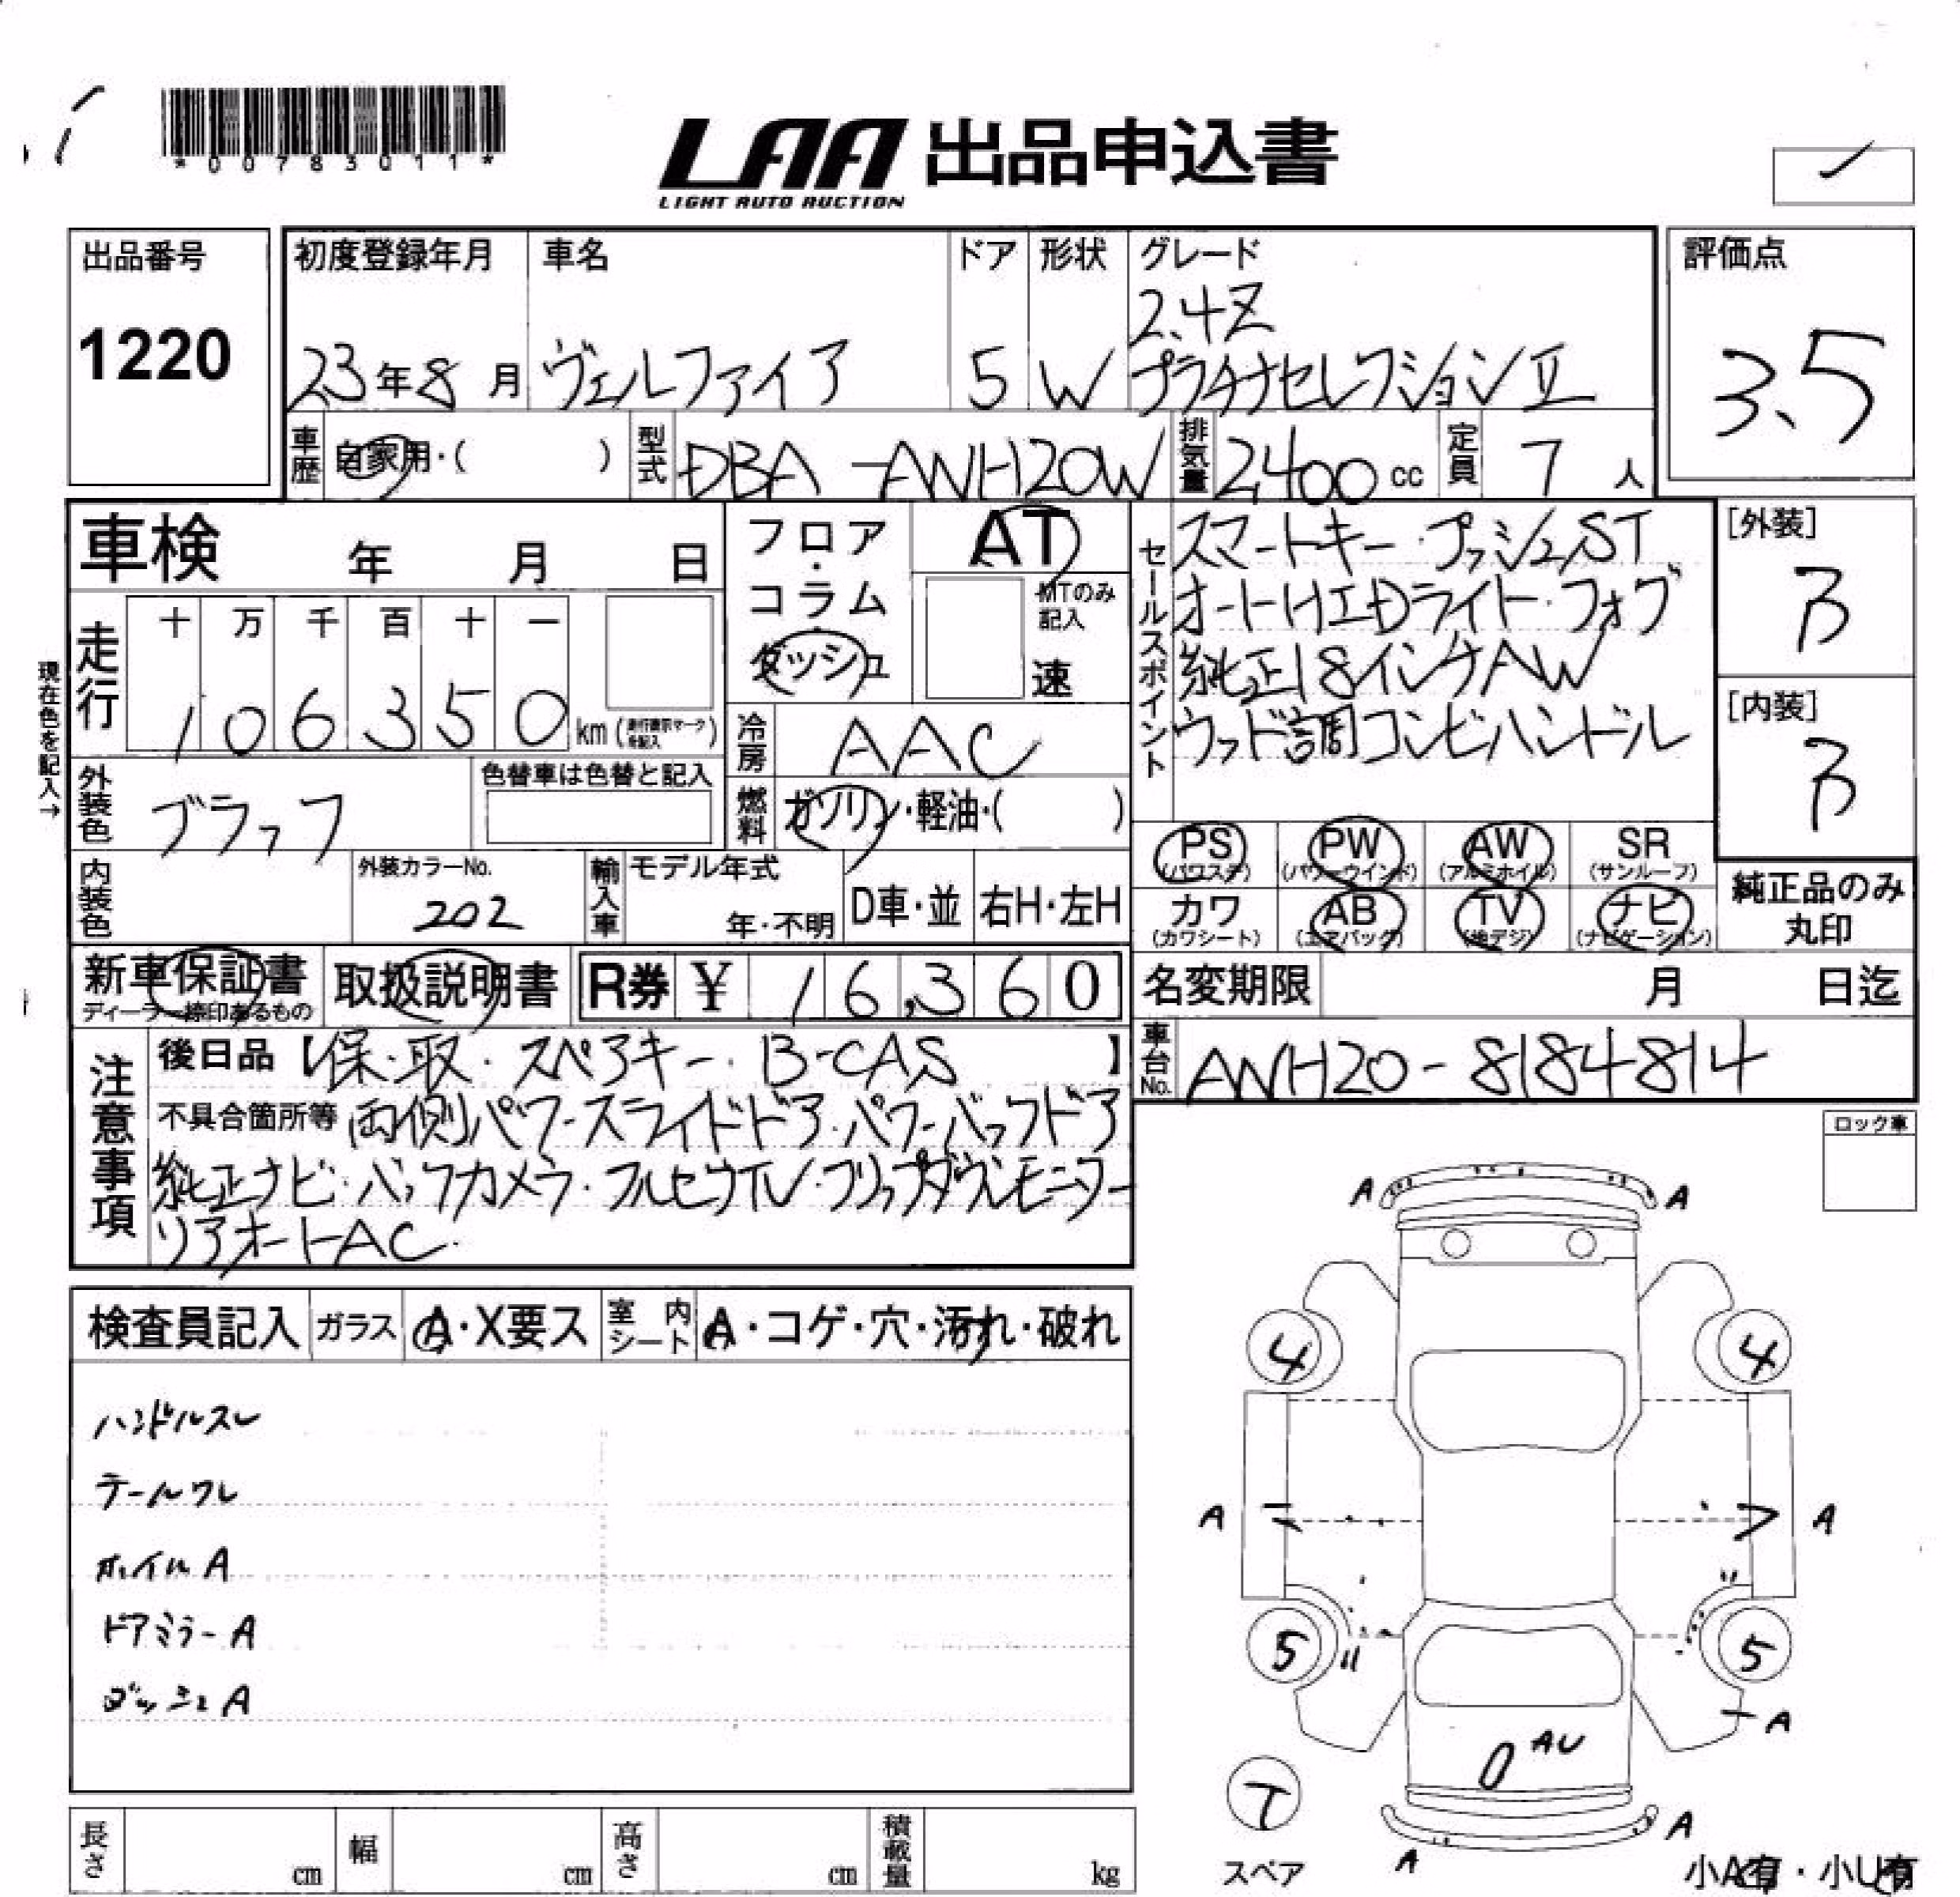 *00783011*
LAA 出品申込書
LIGHT AUTO AUCTION
出品番号
1220
初度登録年月
23年8月
車名
ヴェルファイア
ドア
5
形状
W
グレード
2.4Z
プラチナセレクションⅡ
評価点
3.5
車歴
自家用・( )
型式
DBA-ANH20W
排気量
2,400cc
定員
7人
車検 年 月 日
フロア・コラム・ダッシュ
AT
MTのみ記入
速
セールスポイント
スマートキー・プッシュST
オートHIDライト・フォグ
純正18インチAW
ウッド調コンビハンドル
[外装]
B
[内装]
B
現在色を記入→
走行
十 万 千 百 十 一
1 0 6 3 5 0 km
冷房
AAC
外装色
ブラック
色替車は色替と記入
燃料
ガソリン・軽油・( )
PS
(パワステ)
PW
(パワーウインド)
AW
(アルミホイル)
SR
(サンルーフ)
カワ
(カワシート)
AB
(エアバッグ)
TV
(地デジ)
ナビ
(ナビゲーション)
純正品のみ
丸印
内装色
外装カラーNo.
202
輸入車
モデル年式
年・不明
D車・並
右H・左H
新車保証書
ディーラー捺印あるもの
取扱説明書
R券 ¥ 16,360
名変期限 月 日迄
車台No.
ANH20-8184814
注意事項
後日品【保・取・スペアキー・B-CAS】
不具合箇所等 両側パワースライドドア・パワーバックドア
純正ナビ・バックカメラ・フルセグTV・フリップダウンモニター
リアオートAC
ロック車
検査員記入
ガラス
A・X要ス
室内シート
A・コゲ・穴・汚れ・破れ
ハンドルスレ
テールワレ
ホイルA
ドアミラーA
ダッシュA
A A
4 4
A A
5 5
A
AU
T
スペア
A
A
小A有・小U有
長さ cm
幅 cm
高さ cm
積載量 kg